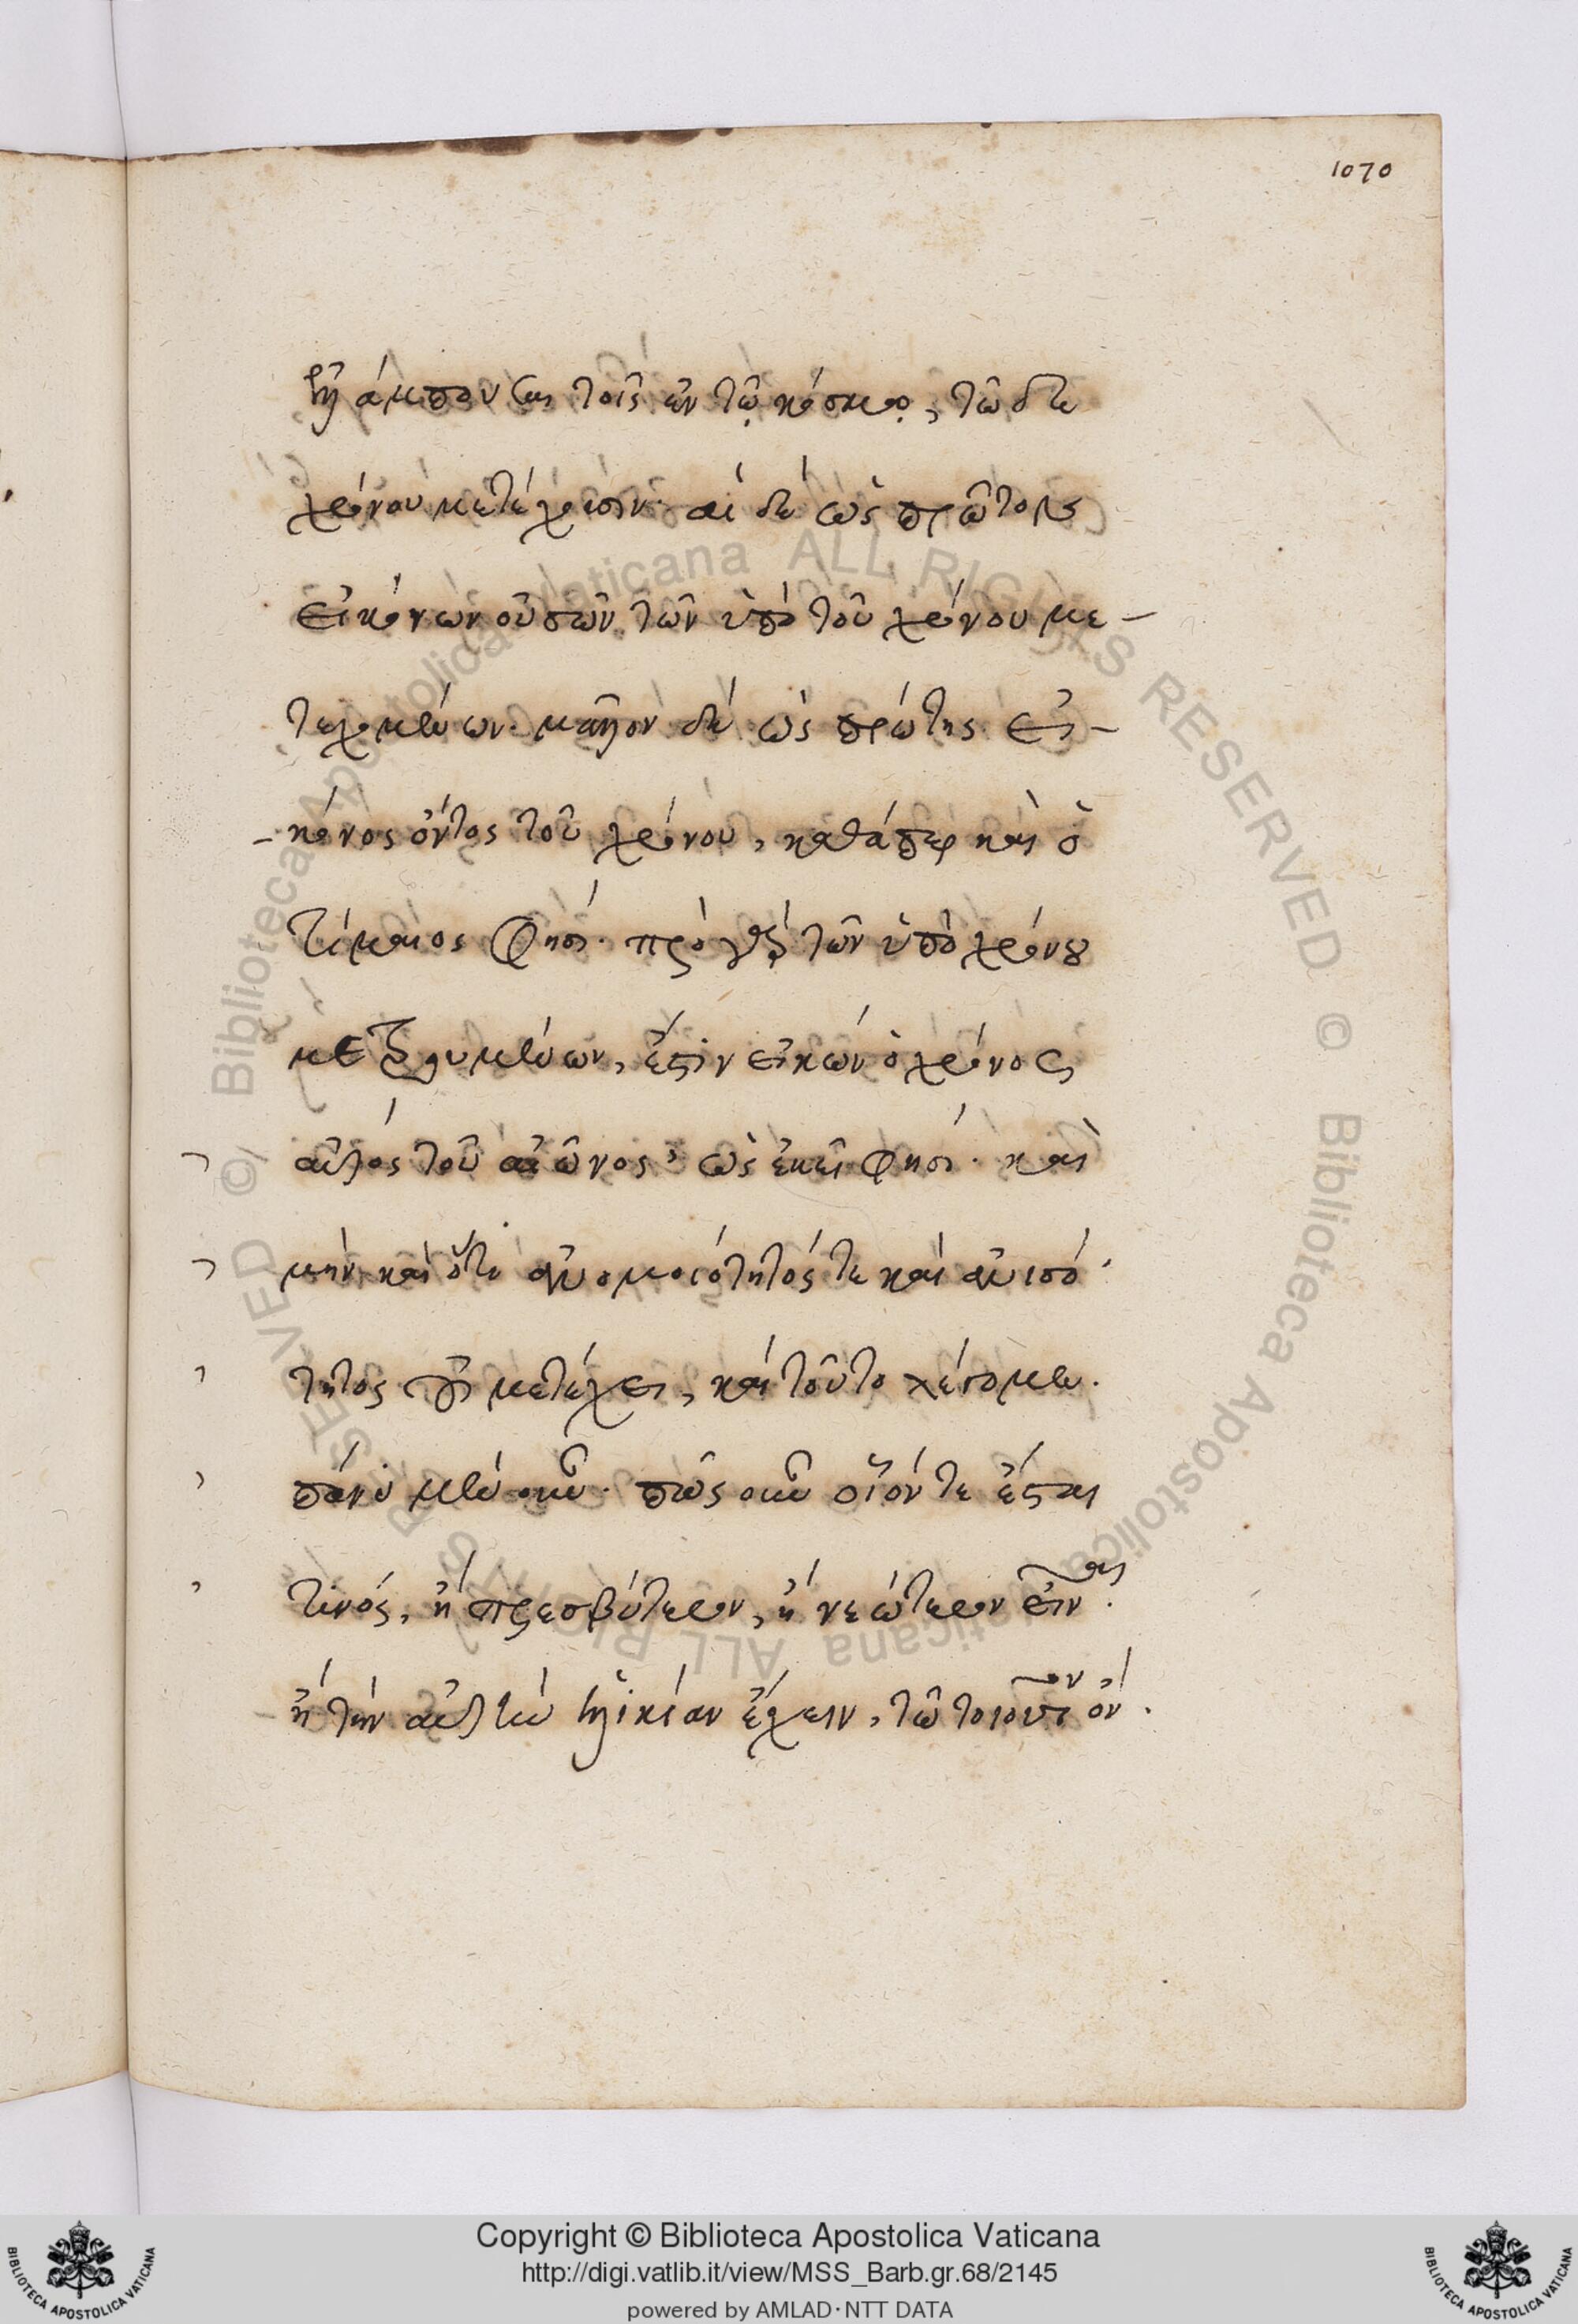 1070
ἐλλάμπουσαι τοῖς ἐν τῷ κόσμῳ, τῶ δὲ
χρόνου μετέχουσιν. αἱ δὲ ὡς πρώτης
εἰκόνων οὐσῶν τῶν ὑπὸ τοῦ χρόνου με-
τεχομένων. μᾶλλον δὲ ὡς πρώτης εἰ-
-κόνος ὄντος τοῦ χρόνου, καθάπερ καὶ ὁ
Τίμαιος φησί. πρὸ γὰρ τῶν ὑπὸ χρόνου
μετρουμένων, ἐστὶν εἰκὼν ὁ χρόνος
αὐτὸς τοῦ αἰῶνος, ὡς ἐκεῖ φησί. καὶ
μὴν καὶ ὅτι ἀνομοιότητός τε καὶ ἀνισό
τητος οὐ μετέχει, καὶ τοῦτο λέγομεν.
πάνυ μὲν οὖν. πῶς οὖν οἷόν τε ἔσται
τινός, ἢ πρεσβύτερον, ἢ νεώτερον εἶναι.
ἢ τὴν αὐτὴν ἡλικίαν ἔχειν, τῶ τοιοῦτον ὄν.
Copyright © Biblioteca Apostolica Vaticana
http://digi.vatlib.it/view/MSS_Barb.gr.68/2145
powered by AMLAD·NTT DATA